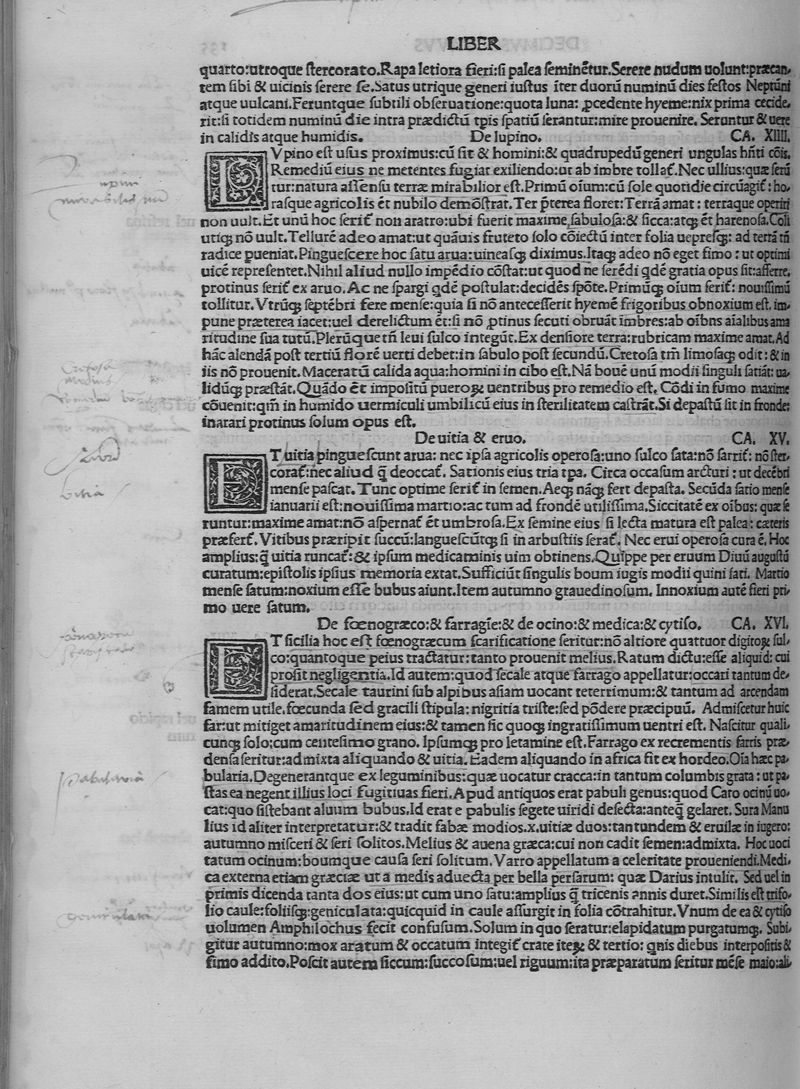 LIBER
quarto:utroque ſtercorato.Rapa letiora fieri:ſi palea ſeminēt̄ur.Serere nudum uolunt:præcan⸗
tem ſibi & uicinis ſerere ſe.Satus utrique generi iuſtus īter duorū numinū dies feſtos Neptūni
atque uulcani.Feruntque ſubtili obſeruatione:quota luna: ꝓcedente hyeme:nix prima cecide⸗
rit:ſi totidem numinū die intra prædictū tp̄is ſpatiū ſerantur:mire prouenire. Seruntur & uere
in calidis atque humidis. De lupino. CA. XIIII.
LVpino eſt uſus proximus:cū ſit & homini:& quadrupedū generi ungulas hn̄ti cōis.
Remediū eius ne metentes fugiat exiliendo:ut ab imbre tollat̄. Nec ullius:quæ ſerū
tur:natura aſſenſu terræ mirabilior eſt.Primū oīum:cū ſole quotidie circūagit̄: ho⸗
raſque agricolis ēt nubilo demōſtrat.Ter p̄terea floret:Terrā amat: terraque operiri
non uult.Et unū hoc ſerit̄ non aratro:ubi fuerit maxime,ſabuloſa:& ſicca:atq; ēt harenoſa.Coli
utiq; nō uult.Tellurē adeo amat:ut quāuis fruteto ſolo cōiectū inter folia uepreſq;: ad terrā tn̄
radice ꝑueniat.Pingueſcere hoc ſatu arua:uineaſq; diximus.Itaq; adeo nō eget fimo: ut optimi
uicē repreſentet.Nihil aliud nullo impēdio cōſtat:ut quod ne ſerēdi q̇dē gratia opus ſit:afferre.
protinus ſerit̄ ex aruo.Ac ne ſpargi q̇dē poſtulat:decidēs ſpōte. Primūq; oīum ſerit̄: nouiſſimū
tollitur.Vtrūq; ſeptēbri fere menſe:quia ſi nō anteceſſerit hyemē frigoribus obnoxium eſt. im⸗
pune præterea iacet:uel derelictum ēt:ſi nō ꝓtinus ſecuti obruāt imbres:ab oībns aīalibus ama
ritudine ſua tutū.Plerūque tn̄ leui ſulco integūt.Ex denſiore terra:rubricam maxime amat.Ad
hāc alendā poſt tertiū florē uerti debet:in ſabulo poſt ſecundū.Cretoſa tm̄ limoſaq; odit:& in
iis nō prouenit.Maceratū calida aqua:homini in cibo eſt.Nā bouē unū modii ſinguli ſatiāt: ua⸗
lidūq; præſtāt.Quādo ēt impoſitū pueroꝝ uentribus pro remedio eſt. Cōdi in fumo maxime
cōuenit:qm̄ in humido uermiculi umbilicū eius in ſterilitatem caſtrāt.Si depaſtū ſit in fronde:
inarari protinus ſolum opus eſt.
De uitia & eruo. CA. XV.
ET uitia pingueſcunt arua: nec ipſa agricolis operoſa:uno ſulco ſata:nō ſarrit̄: nō ſter⸗
corat̄:nec aliud q̄ deoccat̄. Sationis eius tria tp̄a. Circa occaſum arcturi: ut decēbri
menſe paſcat. Tunc optime ſerit̄ in ſemen.Aeq; nāq; fert depaſta. Secūda ſatio menſe
ianuarii eſt:nouiſſima martio:ac tum ad frondē utiliſſima.Siccitatē ex oībus: quæ ſe
runtur:maxime amat:nō aſpernat̄ ēt umbroſa.Ex ſemine eius ſi lecta matura eſt palea: cæteris
præfert̄. Vitibus præripit ſuccū:langueſcūtq; ſi in arbuſtiis ſerat̄. Nec erui operoſa cura ē. Hoc
amplius:q̄ uitia runcat̄:& ipſum medicaminis uim obtinens.Quippe per eruum Diuū auguſtū
curatum:epiſtolis ipſius memoria extat.Sufficiūt ſingulis boum iugis modii quini ſati. Martio
menſe ſatum:noxium eſſe bubus aiunt.Item autumno grauedinoſum. Innoxium autē fieri pri⸗
mo uere ſatum.
De fœnogræco:& farragīe:& de ocino:& medica:& cytiſo. CA. XVI.
ET ſicilia hoc eſt fœnogræcum ſcarificatione ſeritur:nō altiore quattuor digitoꝝ ſul⸗
co:quantoque peius tractatur:tanto prouenit melius.Ratum dictu:eſſe aliquid: cui
proſit negligentia.Id autem:quod ſecale atque farrago appellatur:occari tantum de⸗
ſiderat.Secale taurini ſub alpibus aſiam uocant teterrimum:& tantum ad arcendam
famem utile.fœcunda ſed gracili ſtipula: nigritia triſte:ſed pōdere præcipuū. Admiſcetur huic
far:ut mitiget amaritudinem eius:& tamen ſic quoq; ingratiſſimum uentri eſt. Naſcitur quali⸗
cunq; ſolo:cum centeſimo grano. Ipſumq; pro letamine eſt.Farrago ex recrementis farris præ⸗
denſa ſeritur:admixta aliquando & uitia. Eadem aliquando in africa fit ex hordeo.Oīa hæc pa⸗
bularia.Degenerantque ex leguminibus:quæ uocatur cracca:in tantum columbis grata: ut pa⸗
ſtas ea negent illius loci fugitiuas fieri.Apud antiquos erat pabuli genus:quod Cato ocinū uo⸗
cat:quo ſiſtebant aluum bubus.Id erat e pabulis ſegete uiridi deſecta:anteq̄ gelaret. Sura Manu
lius id aliter interpretatur:& tradit fabæ modios.x.uitiæ duos:tantundem & eruilæ in iugero:
autumno miſceri & ſeri ſolitos.Melius & auena græca:cui non cadit ſemen:admixta. Hoc uoci
tatum ocinum:boumque cauſa ſeri ſolitum.Varro appellatum a celeritate proueniendi.Medi⸗
ca externa etiam græciæ ut a medis aduecta per bella perſarum: quæ Darius intulit. Sed uel in
primis dicenda tanta dos eius:ut cum uno ſatu:amplius q̄ tricenis annis duret.Similis eſt trifo⸗
lio caule:foliiſq;:geniculata:quicquid in caule aſſurgit in folia cōtrahitur.Vnum de ea & cytiſo
uolumen Amphilochus fecit confuſum.Solum in quo ſeratur:elapidatum purgatumq;. Subi⸗
gitur autumno:mox aratum & occatum integit̄ crate iteꝝ & tertio: q̇nis diebus interpoſitis &
fimo addito.Poſcit autem ſiccum:ſuccoſum:uel riguum:ita præparatum ſeritur mēſe maio:ali⸗